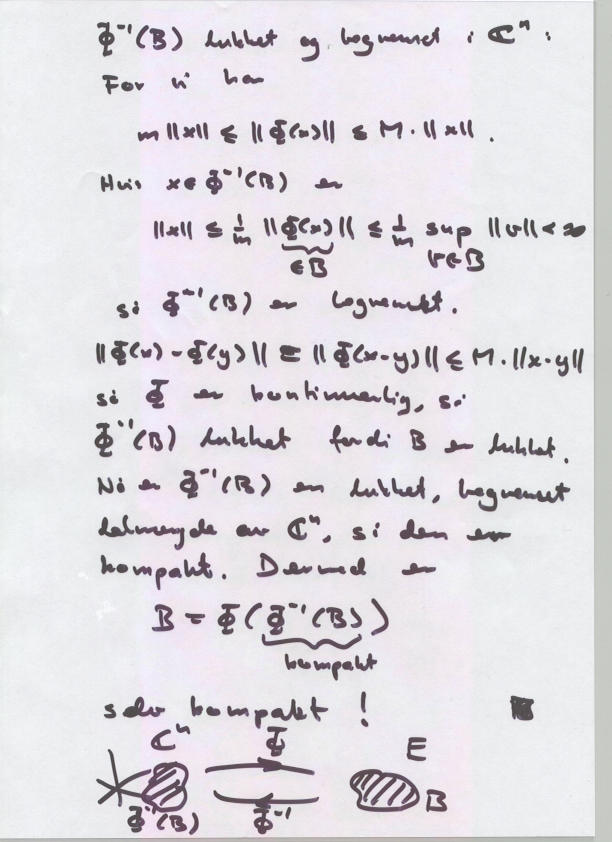 Φ⁻¹(B) lukket og begrenset i ℂⁿ:
For vi har
m‖x‖ ≤ ‖Φ(x)‖ ≤ M·‖x‖.
Hvis x∈Φ⁻¹(B) er
‖x‖ ≤ 1/m ‖Φ(x)‖ ≤ 1/m sup ‖v‖ < ∞
∈B v∈B
så Φ⁻¹(B) er begrenset.
‖Φ(x) - Φ(y)‖ = ‖Φ(x-y)‖ ≤ M·‖x-y‖
så Φ er kontinuerlig, så
Φ⁻¹(B) lukket fordi B er lukket.
Nå er Φ⁻¹(B) en lukket, begrenset
delmengde av ℂⁿ, så den er
kompakt. Dermed er
B = Φ(Φ⁻¹(B))
kompakt
selv kompakt!
ℂⁿ Φ E
B
Φ⁻¹(B) Φ⁻¹